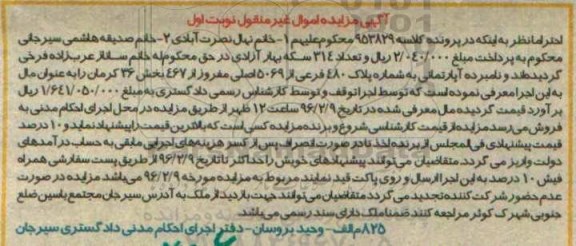 آگهی مزایده اموال غیر منقول نوبت اول
احتراما نظر به اینکه در پرونده کلاسه 953829 محکوم علیهم 1- خانم نهال نصرت آبادی 2- خانم صدیقه هاشمی سیرجانی
محکوم به پرداخت مبلغ 2/040/000 ریال و تعداد 314 سکه بهار آزادی در حق محکوم له خانم ساناز عرب زاده فرخی
گردیده اند و نامبرده آپارتمانی به شماره پلاک 480 فرعی از 5069 اصلی مفروز از 467 بخش 36 کرمان را به عنوان مال
به این اجرا معرفی نموده است که توسط اجرا توقف و توسط کارشناس رسمی دادگستری به مبلغ 1/641/050/000 ریال
برآورد قیمت گردیده مال معرفی شده در تاریخ 96/2/9 ساعت 12 ظهر از طریق مزایده در محل اجرای احکام مدنی به
فروش می رسد مزایده از قیمت کارشناسی شروع و برنده مزایده کسی است که بالاترین قیمت را پیشنهاد نماید و 10 درصد
قیمت پیشنهادی فی المجلس از برنده اخذ تا در صورت انصراف پس از کسر هزینه های اجرایی مابقی به حساب درآمدهای
دولت واریز می گردد. متقاضیان می توانند پیشنهادهای خویش را حداکثر تا تاریخ 96/2/9 از طریق پست سفارشی همراه
فیش 10 درصد به این اجرا ارسال و روی پاکت قید نمایند مربوط به مزایده مورخه 96/2/9 می باشد مزایده در صورت
عدم حضور شرکت کننده تجدید می گردد متقاضیان می توانند جهت بازدید از ملک به آدرس سیرجان مجتمع یاسین ضلع
جنوبی شهرک کوثر مراجعه کنند ضمنا ملک دارای سند رسمی می باشد.
825 م الف - وحید بروسان - دفتر اجرای احکام مدنی دادگستری سیرجان